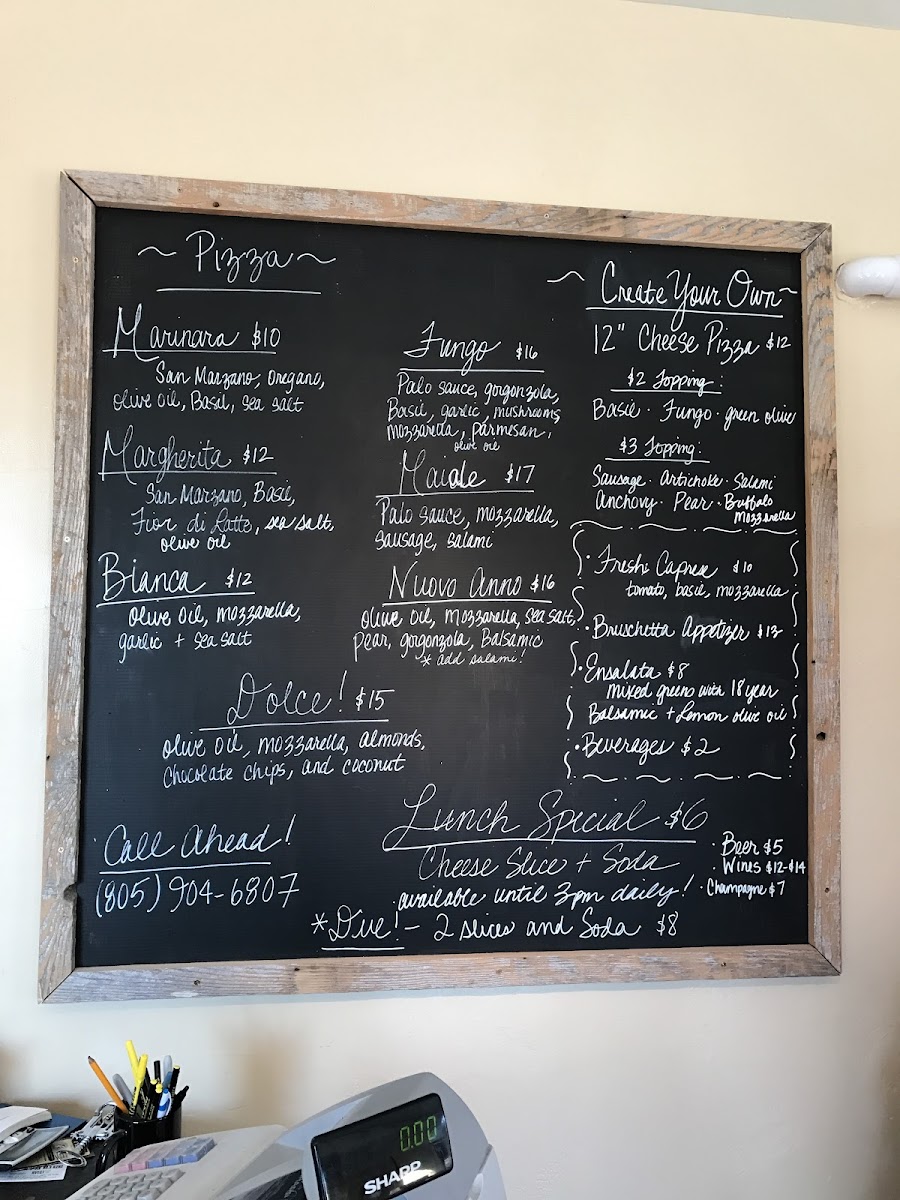 ~ Pizza ~
Marinara $10
San Marzano, Oregano,
olive oil, Basil, sea salt
Margherita $12
San Marzano, Basil,
Fior di Latte, sea salt,
olive oil
Bianca $12
olive oil, mozzarella,
garlic + sea salt
Fungo $16
Palo sauce, gorgonzola,
Basil, garlic, mushrooms,
mozzarella, parmesan,
olive oil
Maiale $17
Palo sauce, mozzarella,
sausage, salami
Nuovo Anno $16
olive oil, mozzarella, sea salt,
pear, gorgonzola, Balsamic
* add salami!
Dolce! $15
olive oil, mozzarella, almonds,
chocolate chips, and coconut
~ Create Your Own ~
12" Cheese Pizza $12
$2 Topping:
Basil · Fungo · green olive
$3 Topping:
Sausage · Artichoke · Salami
Anchovy · Pear · Buffalo
Mozzarella
· Fresh Caprese $10
tomato, basil, mozzarella
· Bruschetta Appetizer $13
· Ensalata $8
mixed greens with 18 year
Balsamic + Lemon olive oil
· Beverages $2
Call Ahead!
(805) 904-6807
Lunch Special $6
Cheese Slice + Soda
available until 3pm daily!
*Due! - 2 slices and Soda $8
· Beer $5
· Wines $12-$14
· Champagne $7
0.00
SHARP